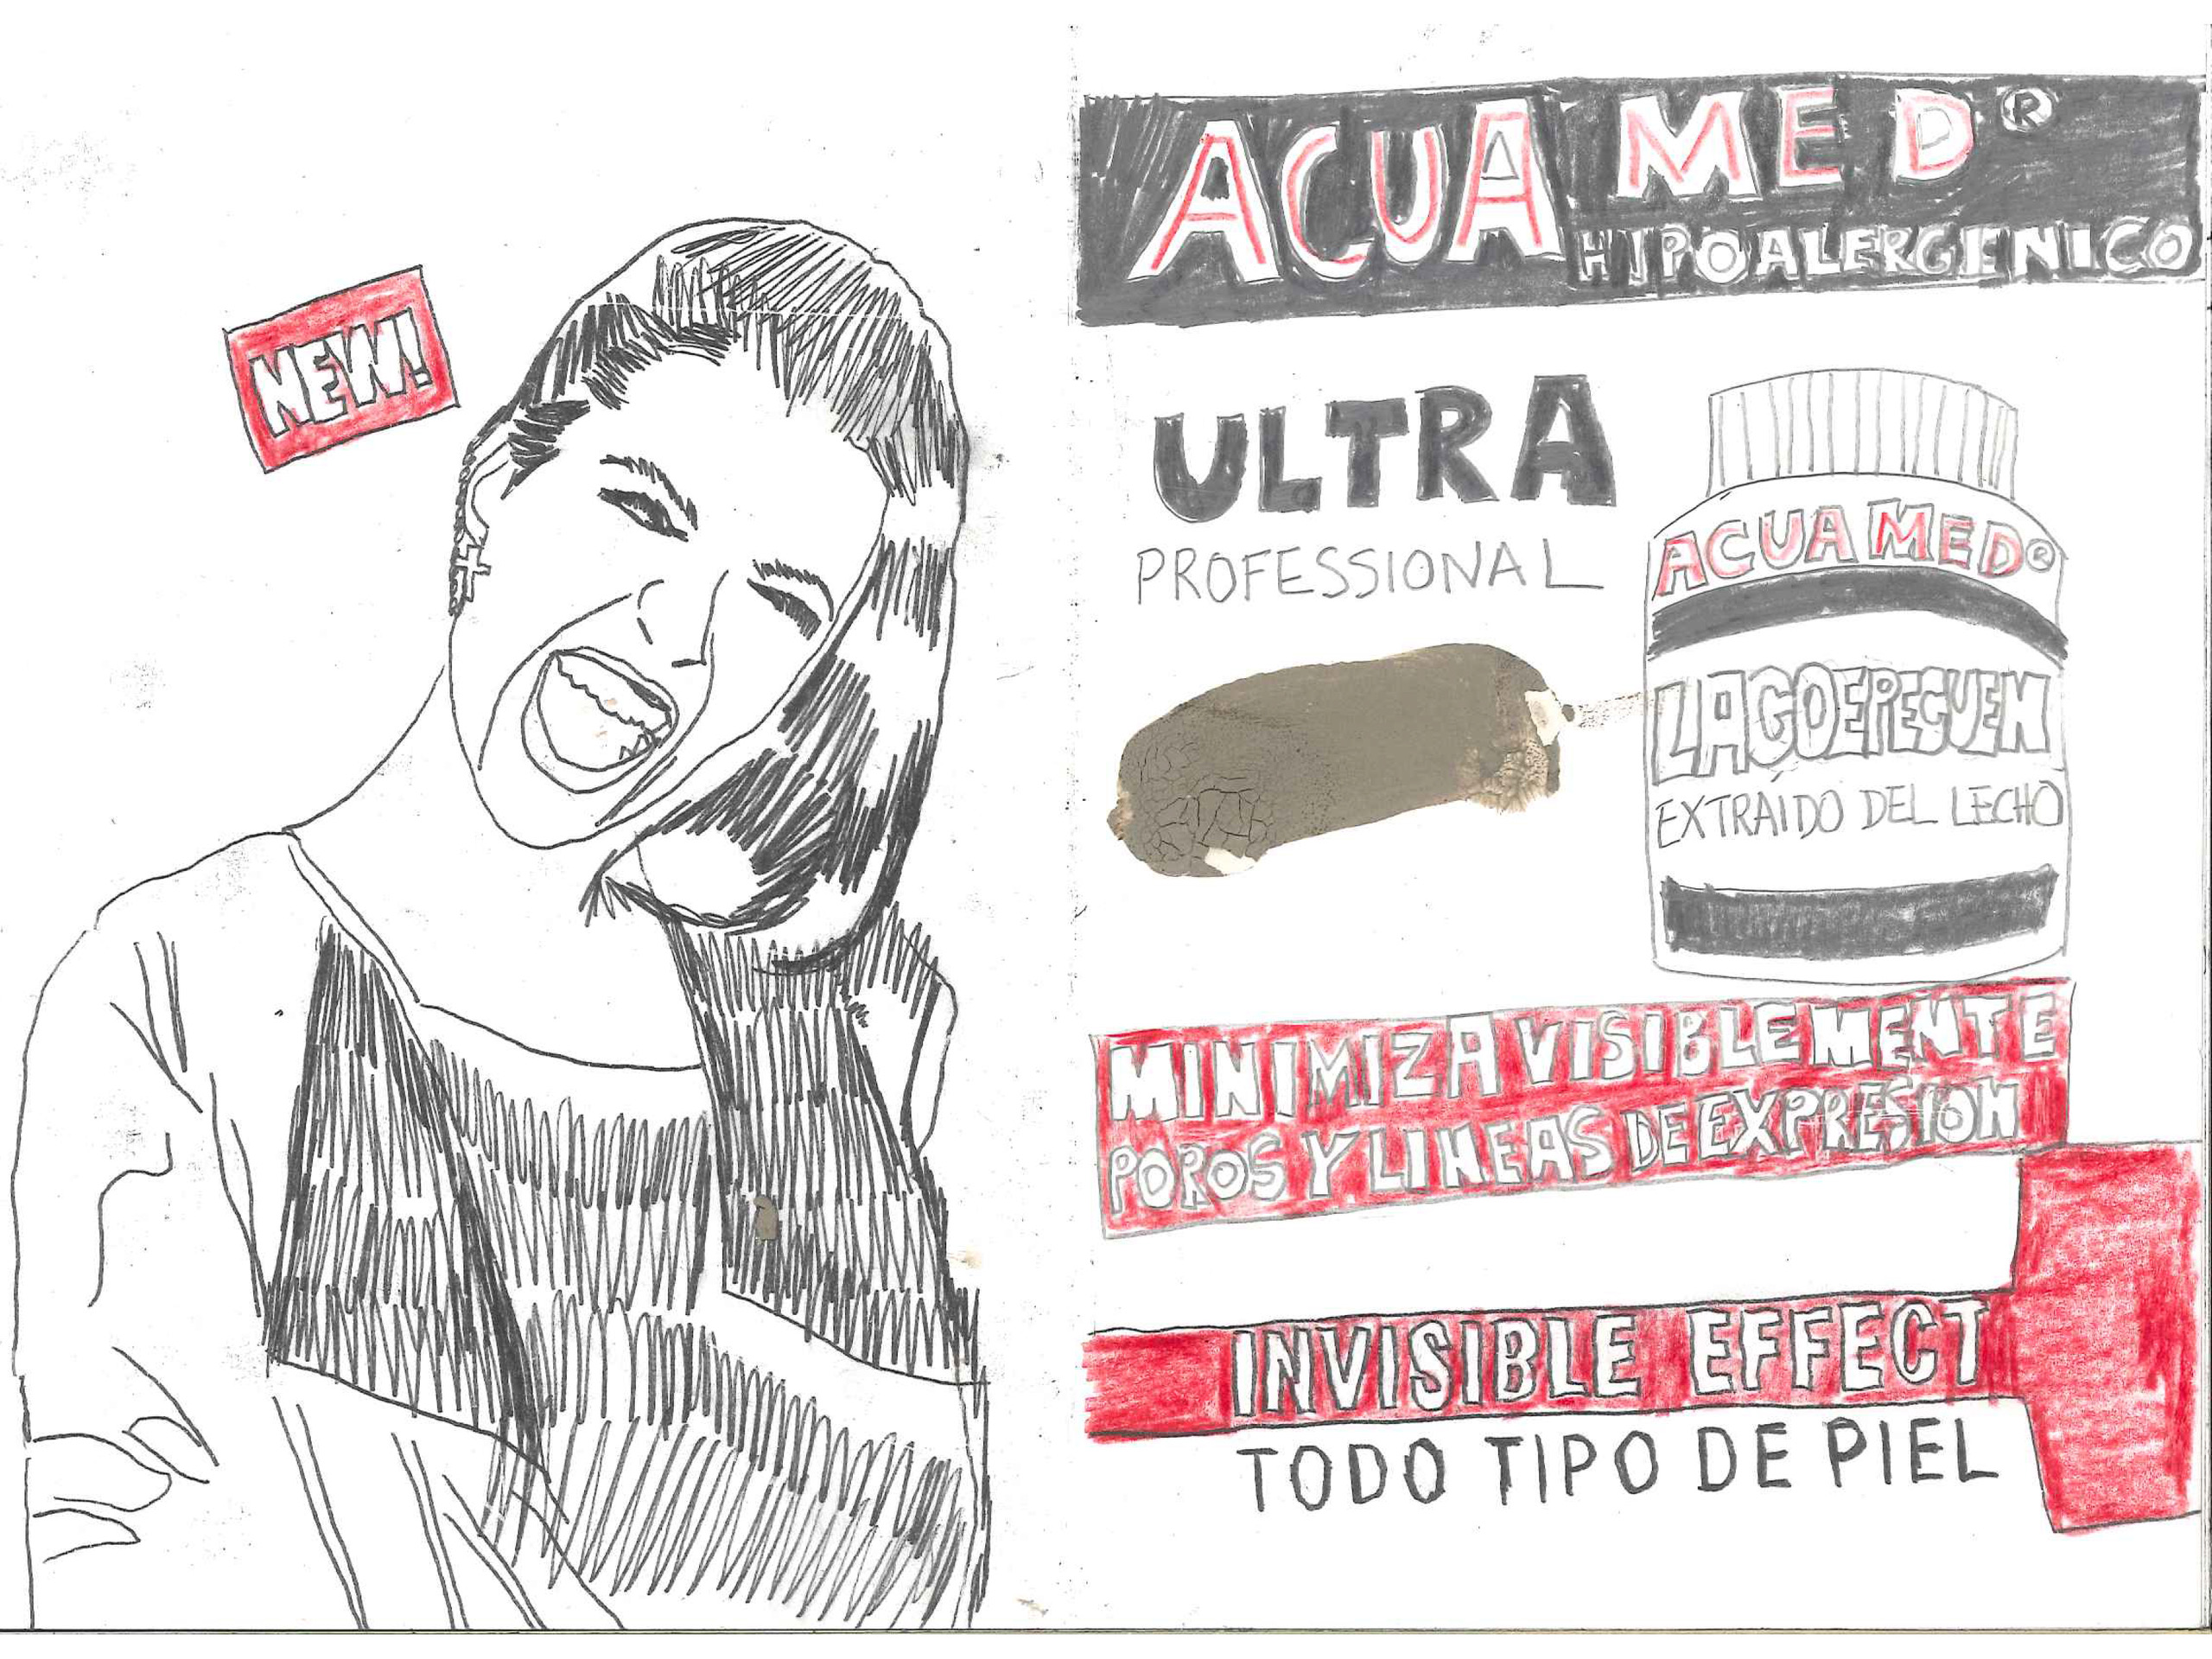 NEW!
ACUA MED®
HIPOALERGENICO
ULTRA
PROFESSIONAL
ACUA MED®
LAGOEPECUEN
EXTRAÍDO DEL LECHO
MINIMIZA VISIBLEMENTE
POROS Y LINEAS DE EXPRESION
INVISIBLE EFFECT
TODO TIPO DE PIEL